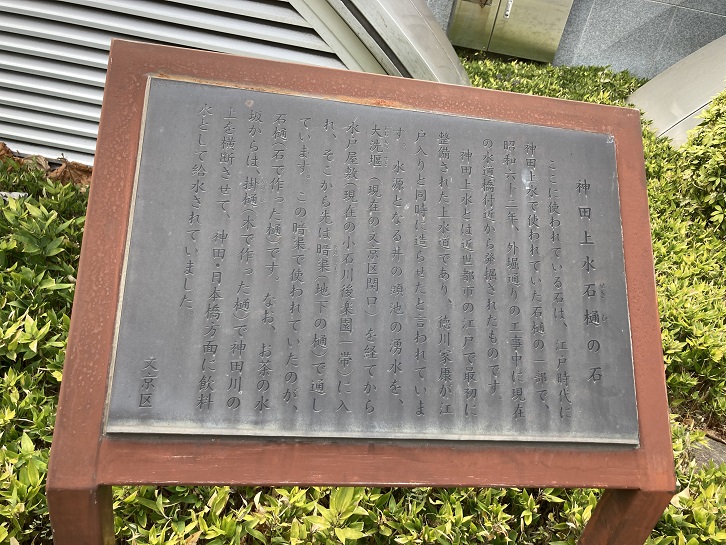 神田上水石樋の石
ここに使われている石は、江戸時代に
神田上水で使われていた石樋の一部で、
昭和六十二年、外堀通りの工事中に現在
の水道橋付近から発掘されたものです。
神田上水とは近世都市の江戸で最初に
整備された上水道であり、徳川家康が江
戸入りと同時に造らせたと言われていま
す。水源となる井の頭池の湧水を、
大洗堰（現在の文京区関口）を経てから
水戸屋敷（現在の小石川後楽園一帯）に入
れ、そこから先は暗渠（地下の樋）で通し
ています。この暗渠で使われていたのが、
石樋（石で作った樋）です。なお、お茶の水
坂からは、掛樋（木で作った樋）で神田川の
上を横断させて、神田・日本橋方面に飲料
水として給水されていました。
文京区